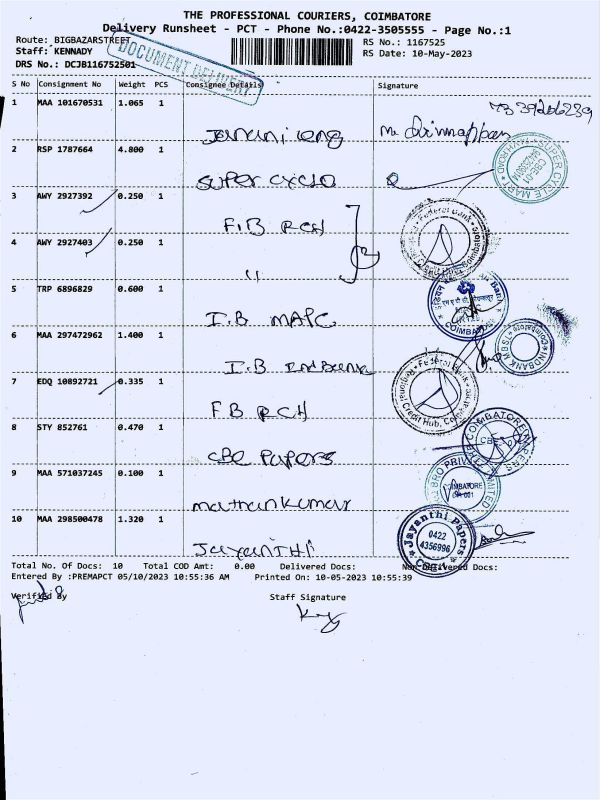 THE PROFESSIONAL COURIERS, COIMBATORE
Delivery Runsheet - PCT - Phone No.:0422-3505555 - Page No.:1
Route: BIGBAZARSTREET
RS No.: 1167525
Staff: KENNADY
RS Date: 10-May-2023
DRS No.: DCJB116752501
DOCUMENT DELIVERY
S No Consignment No Weight PCS Consignee Details Signature
1 MAA 101670531 1.065 1
Janani eng
2 RSP 1787664 4.800 1
Super cyclo
SUPER CYCLE MART
3 AWY 2927392 0.250 1
F.B RCH
Federal Bank
4 AWY 2927403 0.250 1
"
5 TRP 6896829 0.600 1
I.B MAPC
COIMBATORE
6 MAA 297472962 1.400 1
I.B Ind Bank
INDBANK MBSL
Coimbatore
7 EDQ 10892721 0.335 1
FB RCH
Federal Bank
Credit Hub, Coimbatore
8 STY 852761 0.470 1
CBE Papers
THE COIMBATORE PAPERS
9 MAA 571037245 0.100 1
mathankumar
COIMBATORE
10 MAA 298500478 1.320 1
JAYANTHI
Jayanthi Papers
0422
4356996
Total No. Of Docs: 10 Total COD Amt: 0.00 Delivered Docs: Non-Delivered Docs:
Entered By :PREMAPCT 05/10/2023 10:55:36 AM Printed On: 10-05-2023 10:55:39
Verified By
Staff Signature